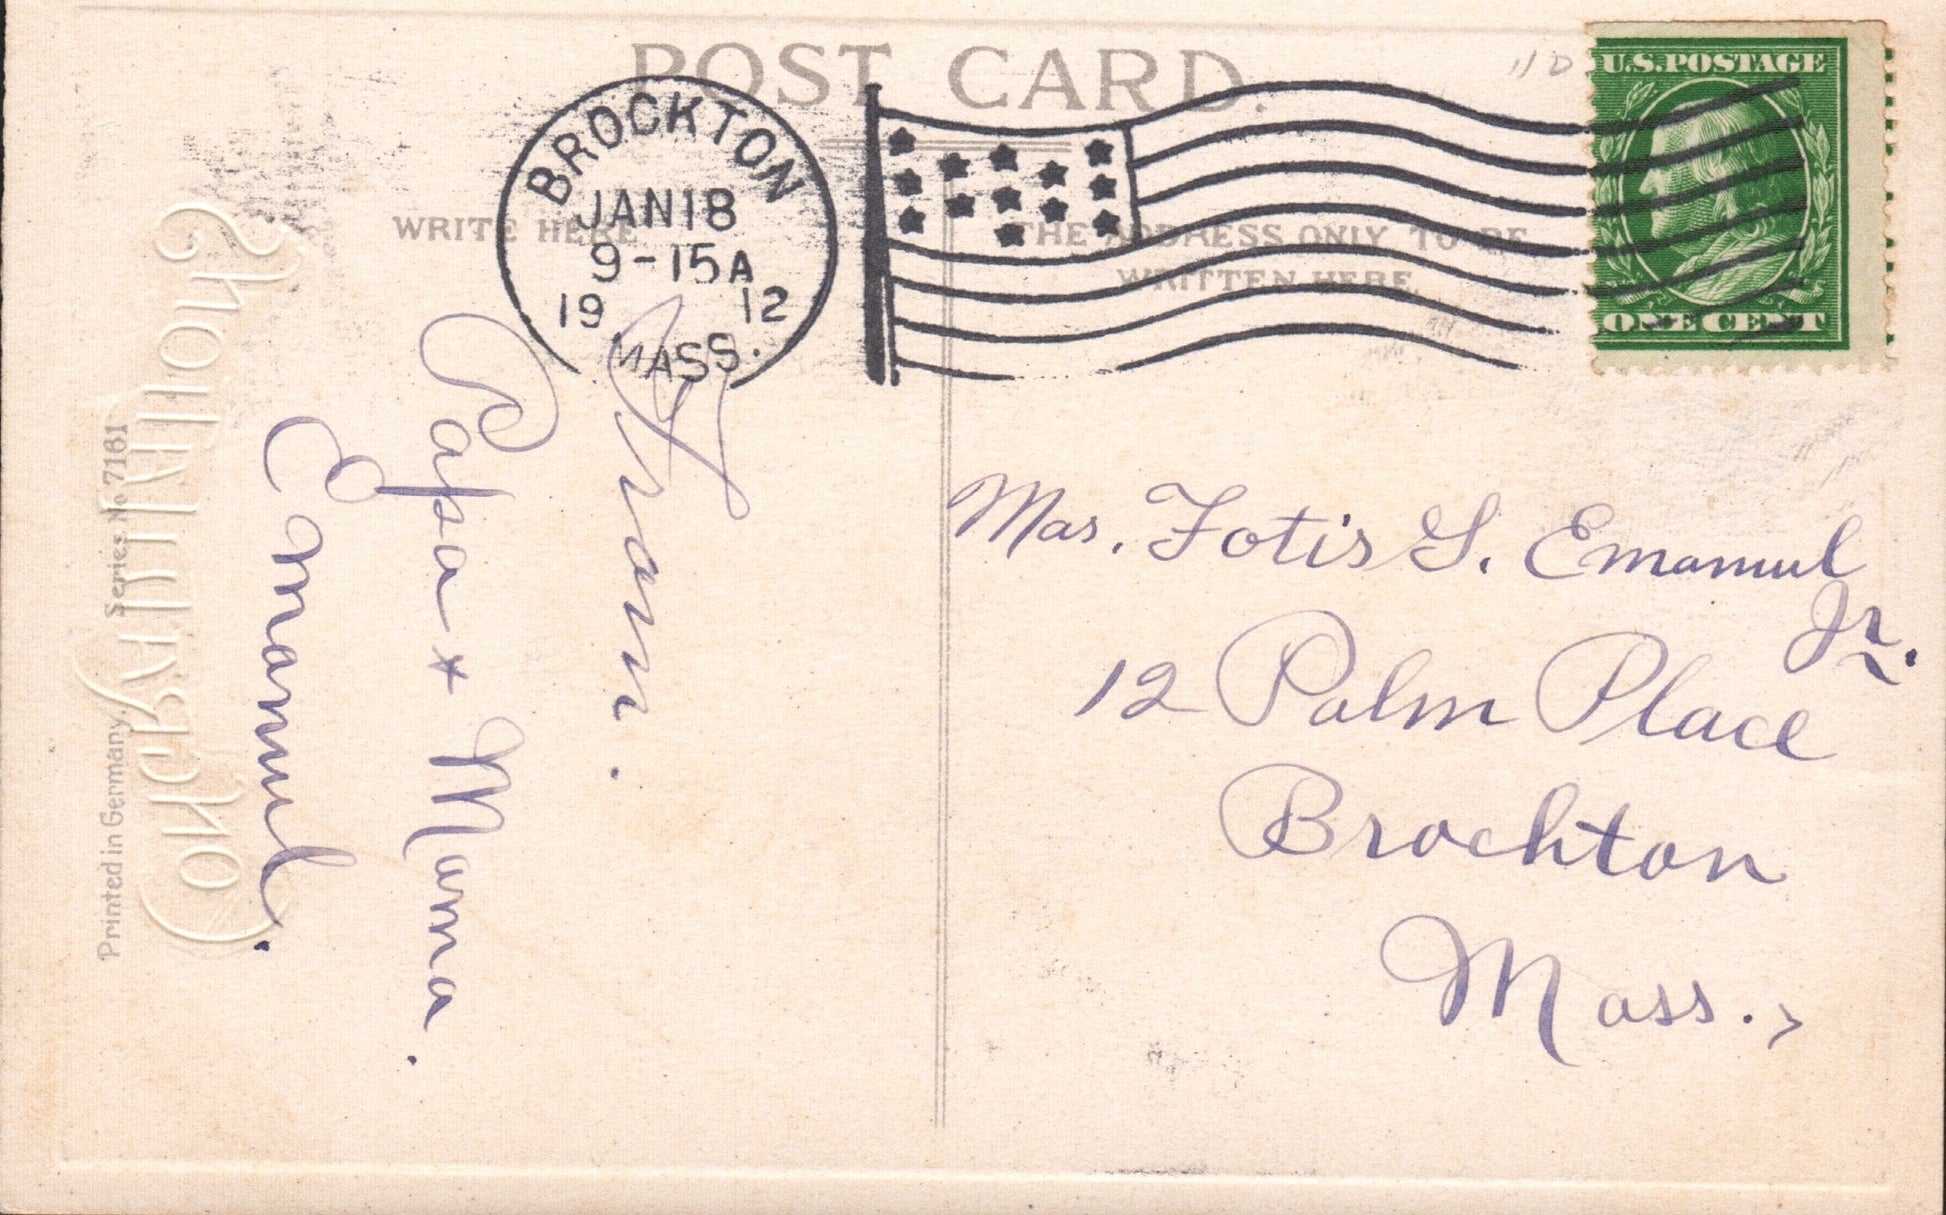 POST CARD.
110
U.S. POSTAGE
ONE CENT
BROCKTON
JAN 18
9-15A
19 12
MASS.
WRITE HERE
THE ADDRESS ONLY TO BE
WRITTEN HERE
From.
Papa + Mama.
Emanuel.
Mas. Fotis S. Emanuel
Jr.
12 Palm Place
Brockton
Mass.,
Printed in Germany. Series No 7161